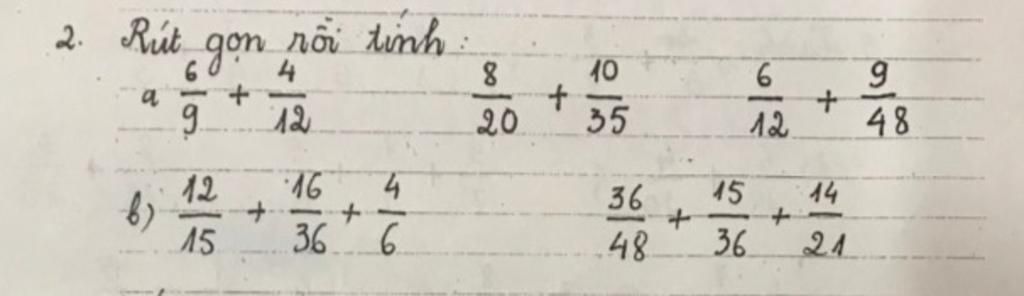 2. Rút gọn rồi tính:
a 6/9 + 4/12 8/20 + 10/35 6/12 + 9/48
b) 12/15 + 16/36 + 4/6 36/48 + 15/36 + 14/21